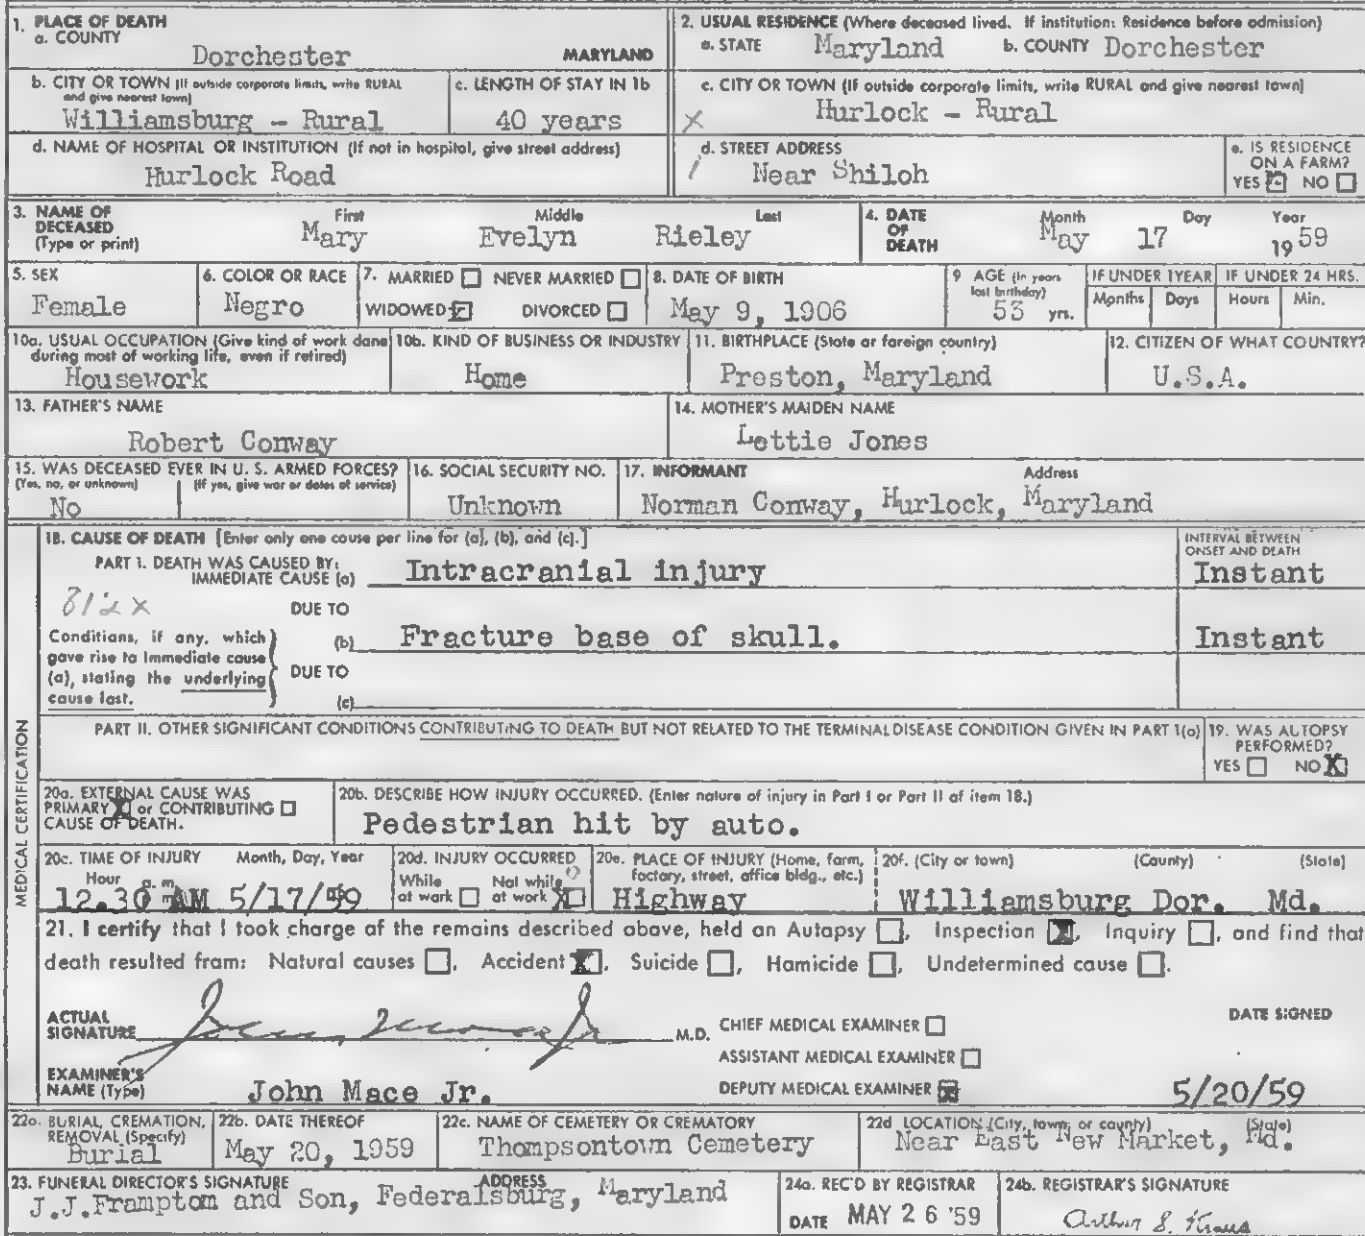 1. PLACE OF DEATH
a. COUNTY
Dorchester MARYLAND
2. USUAL RESIDENCE (Where deceased lived. If institution: Residence before admission)
a. STATE Maryland b. COUNTY Dorchester
b. CITY OR TOWN (If outside corporate limits, write RURAL and give nearest town)
Williamsburg - Rural
c. LENGTH OF STAY IN 1b
40 years
c. CITY OR TOWN (If outside corporate limits, write RURAL and give nearest town)
X Hurlock - Rural
d. NAME OF HOSPITAL OR INSTITUTION (If not in hospital, give street address)
Hurlock Road
d. STREET ADDRESS
Near Shiloh
e. IS RESIDENCE ON A FARM?
YES NO
3. NAME OF DECEASED (Type or print)
First Middle Last
Mary Evelyn Rieley
4. DATE OF DEATH
Month Day Year
May 17 1959
5. SEX
Female
6. COLOR OR RACE
Negro
7. MARRIED NEVER MARRIED
WIDOWED DIVORCED
8. DATE OF BIRTH
May 9, 1906
9 AGE (In years last birthday)
53 yrs.
IF UNDER 1 YEAR
Months Days
IF UNDER 24 HRS.
Hours Min.
10a. USUAL OCCUPATION (Give kind of work done during most of working life, even if retired)
Housework
10b. KIND OF BUSINESS OR INDUSTRY
Home
11. BIRTHPLACE (State or foreign country)
Preston, Maryland
12. CITIZEN OF WHAT COUNTRY?
U.S.A.
13. FATHER'S NAME
Robert Conway
14. MOTHER'S MAIDEN NAME
Lettie Jones
15. WAS DECEASED EVER IN U. S. ARMED FORCES?
(Yes, no, or unknown) (If yes, give war or dates of service)
No
16. SOCIAL SECURITY NO.
Unknown
17. INFORMANT Address
Norman Conway, Hurlock, Maryland
MEDICAL CERTIFICATION
18. CAUSE OF DEATH [Enter only one cause per line for (a), (b), and (c).]
INTERVAL BETWEEN ONSET AND DEATH
PART I. DEATH WAS CAUSED BY:
IMMEDIATE CAUSE (a) Intracranial injury Instant
812x
DUE TO
Conditions, if any, which gave rise to immediate cause (a), stating the underlying cause last.
(b) Fracture base of skull. Instant
DUE TO
(c)
PART II. OTHER SIGNIFICANT CONDITIONS CONTRIBUTING TO DEATH BUT NOT RELATED TO THE TERMINAL DISEASE CONDITION GIVEN IN PART I(a)
19. WAS AUTOPSY PERFORMED?
YES NO X
20a. EXTERNAL CAUSE WAS
PRIMARY X or CONTRIBUTING
CAUSE OF DEATH.
20b. DESCRIBE HOW INJURY OCCURRED. (Enter nature of injury in Part I or Part II of item 18.)
Pedestrian hit by auto.
20c. TIME OF INJURY Month, Day, Year
Hour a. m.
12.30 AM 5/17/59
20d. INJURY OCCURRED
While at work Not while at work X
20e. PLACE OF INJURY (Home, farm, factory, street, office bldg., etc.)
Highway
20f. (City or town) (County) (State)
Williamsburg Dor. Md.
21. I certify that I took charge of the remains described above, held an Autopsy , Inspection X, Inquiry , and find that
death resulted from: Natural causes , Accident X, Suicide , Homicide , Undetermined cause .
ACTUAL SIGNATURE M.D.
CHIEF MEDICAL EXAMINER
ASSISTANT MEDICAL EXAMINER
DEPUTY MEDICAL EXAMINER X
DATE SIGNED
5/20/59
EXAMINER'S NAME (Type) John Mace Jr.
22a. BURIAL, CREMATION, REMOVAL (Specify)
Burial
22b. DATE THEREOF
May 20, 1959
22c. NAME OF CEMETERY OR CREMATORY
Thompsontown Cemetery
22d LOCATION (City, town, or county) (State)
Near East New Market, Md.
23. FUNERAL DIRECTOR'S SIGNATURE ADDRESS
J.J.Framptom and Son, Federalsburg, Maryland
24a. REC'D BY REGISTRAR
DATE MAY 26 '59
24b. REGISTRAR'S SIGNATURE
Arthur S. Kraus